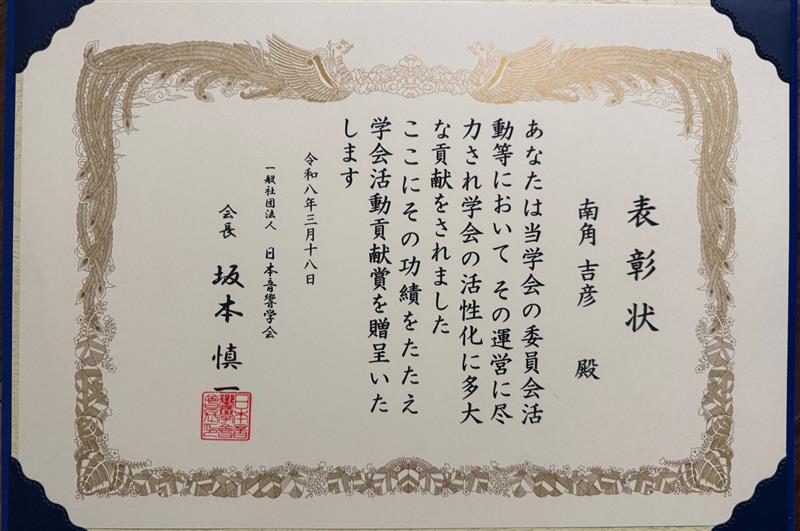 表彰状
南角吉彦 殿
あなたは当学会の委員会活
動等において その運営に尽
力され学会の活性化に多大
な貢献をされました
ここにその功績をたたえ
学会活動貢献賞を贈呈いた
します
令和八年三月十八日
一般社団法人 日本音響学会
会長 坂本慎一